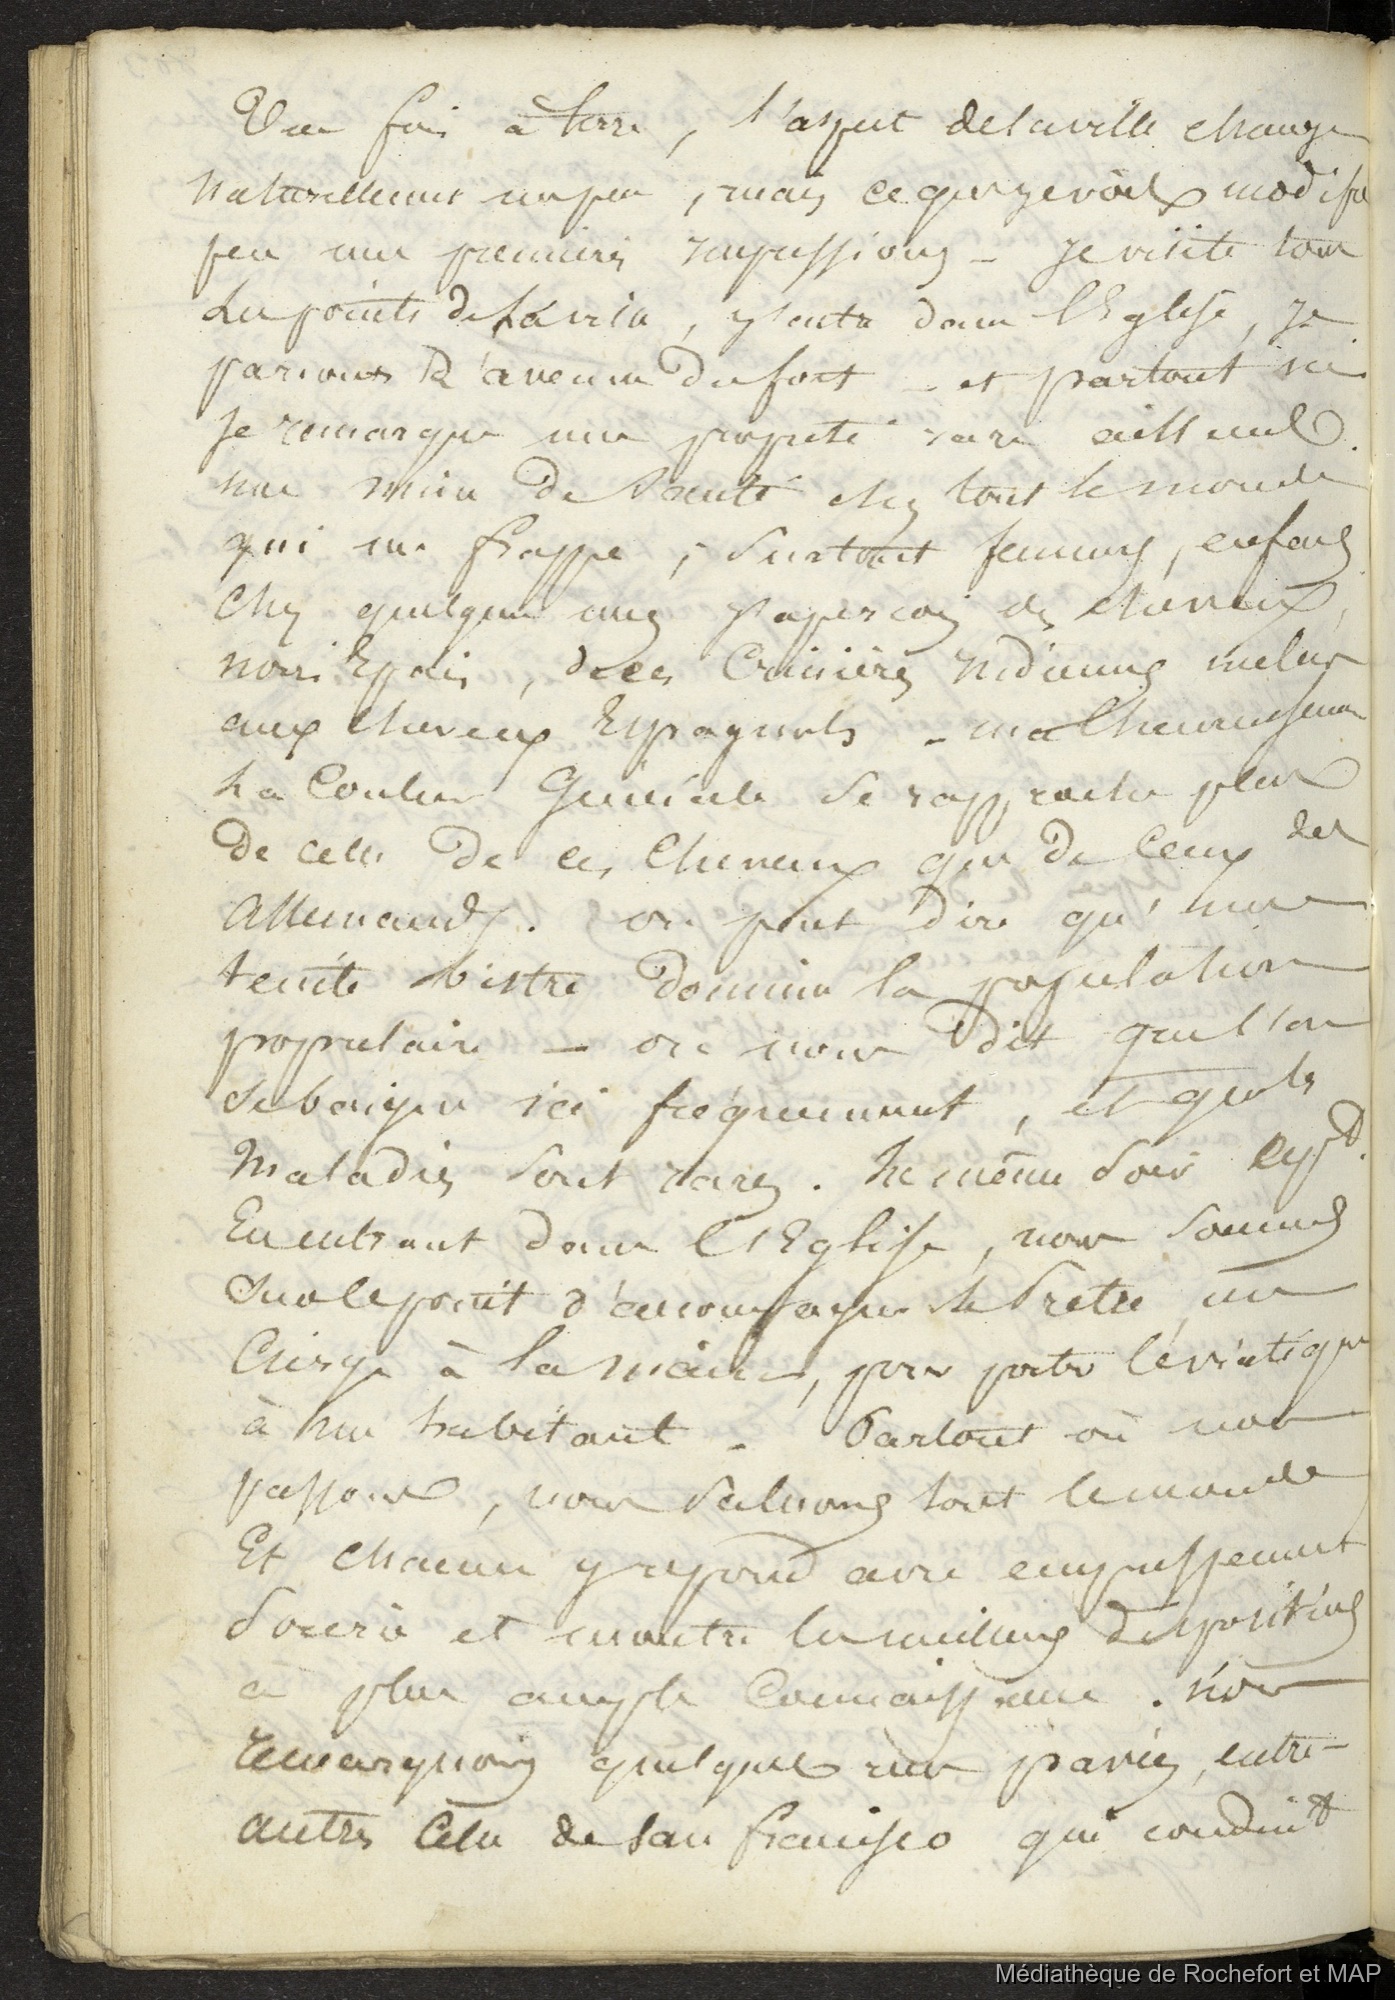 Une fois à terre, l'aspect de la ville change
naturellement un peu, mais ce que je vois modifie
peu mes premières impressions - Je visite tous
les points de la ville, j'entre dans l'Eglise, je
parcours l'avenue du fort - et partout ici
je remarque une propreté rare ailleurs.
une mine de santé chez tout le monde
qui me frappe, surtout femmes, enfans
Chez quelques uns j'aperçois des cheveux,
noirs épais, de ces Crinières indiennes mêlées
aux cheveux Espagnols - malheureusement
La Couleur Générale se rapproche plus
de celle de ces Cheveux que de Ceux des
Allemands. on peut dire qu'une
teinte bistre domine la population
populaire - on nous dit que l'on
se baigne ici fréquemment, et que les
Maladies sont rares. Le même soir
En entrant dans l'Eglise, nous sommes
sur le point d'accompagner le Prêtre, un
Cierge à la main, pour porter le viatique
à un habitant - Partout où nous
passons, nous saluons tout le monde
Et chacun y répond avec empressement
sourit et montre les meilleures dispositions
à plus ample Connaissance. Nous
remarquons quelques rues pavées, entre-
autres Celle de San Francisco qui conduit
Médiathèque de Rochefort et MAP